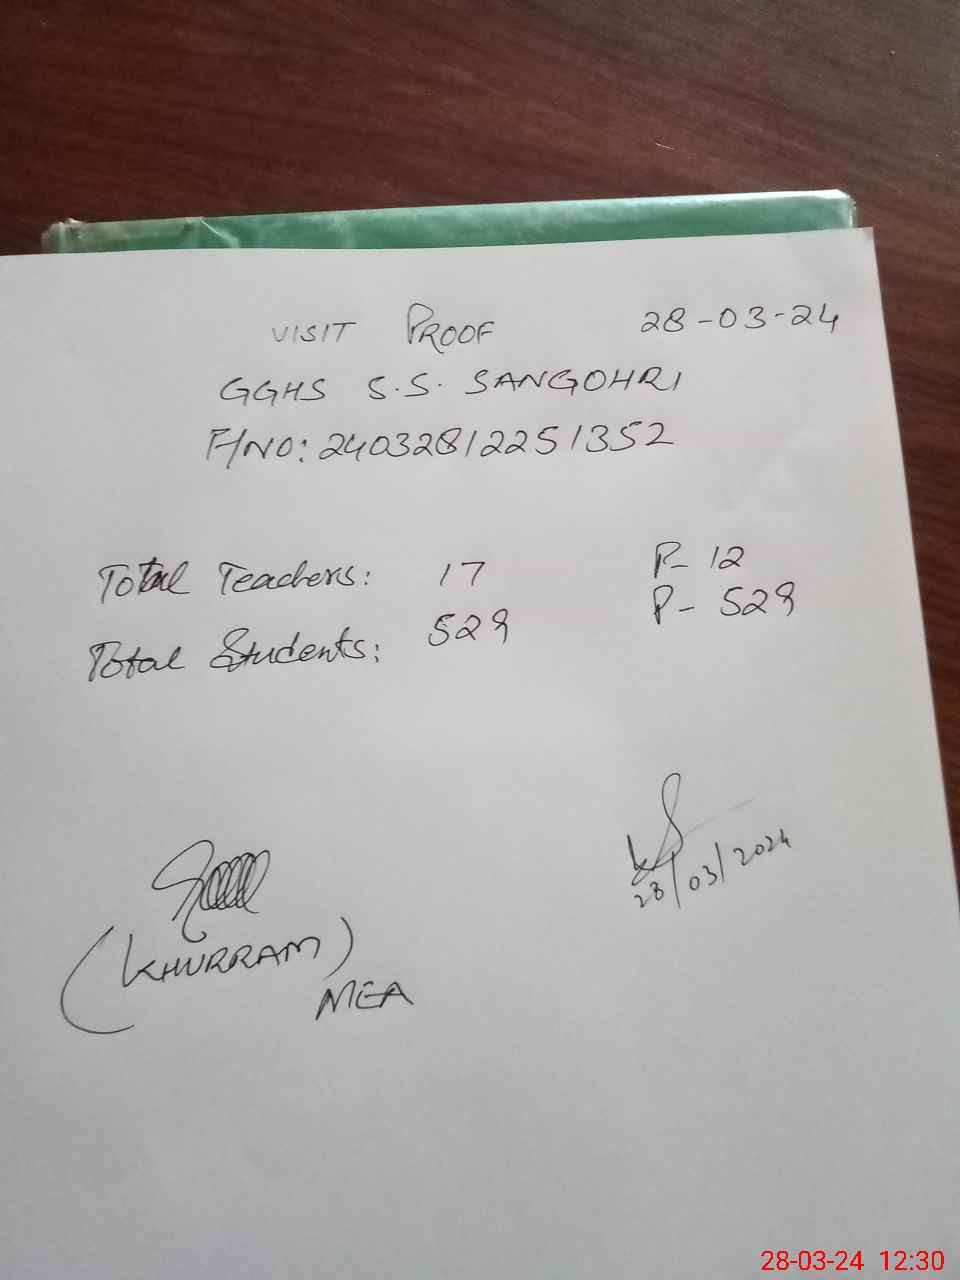 VISIT PROOF 28-03-24
GGHS S.S. SANGOHRI
F/NO: 24032812251352
Total Teachers: 17 P- 12
Total Students: 529 P- 529
28/03/2024
(KHURRAM)
MEA
28-03-24 12:30